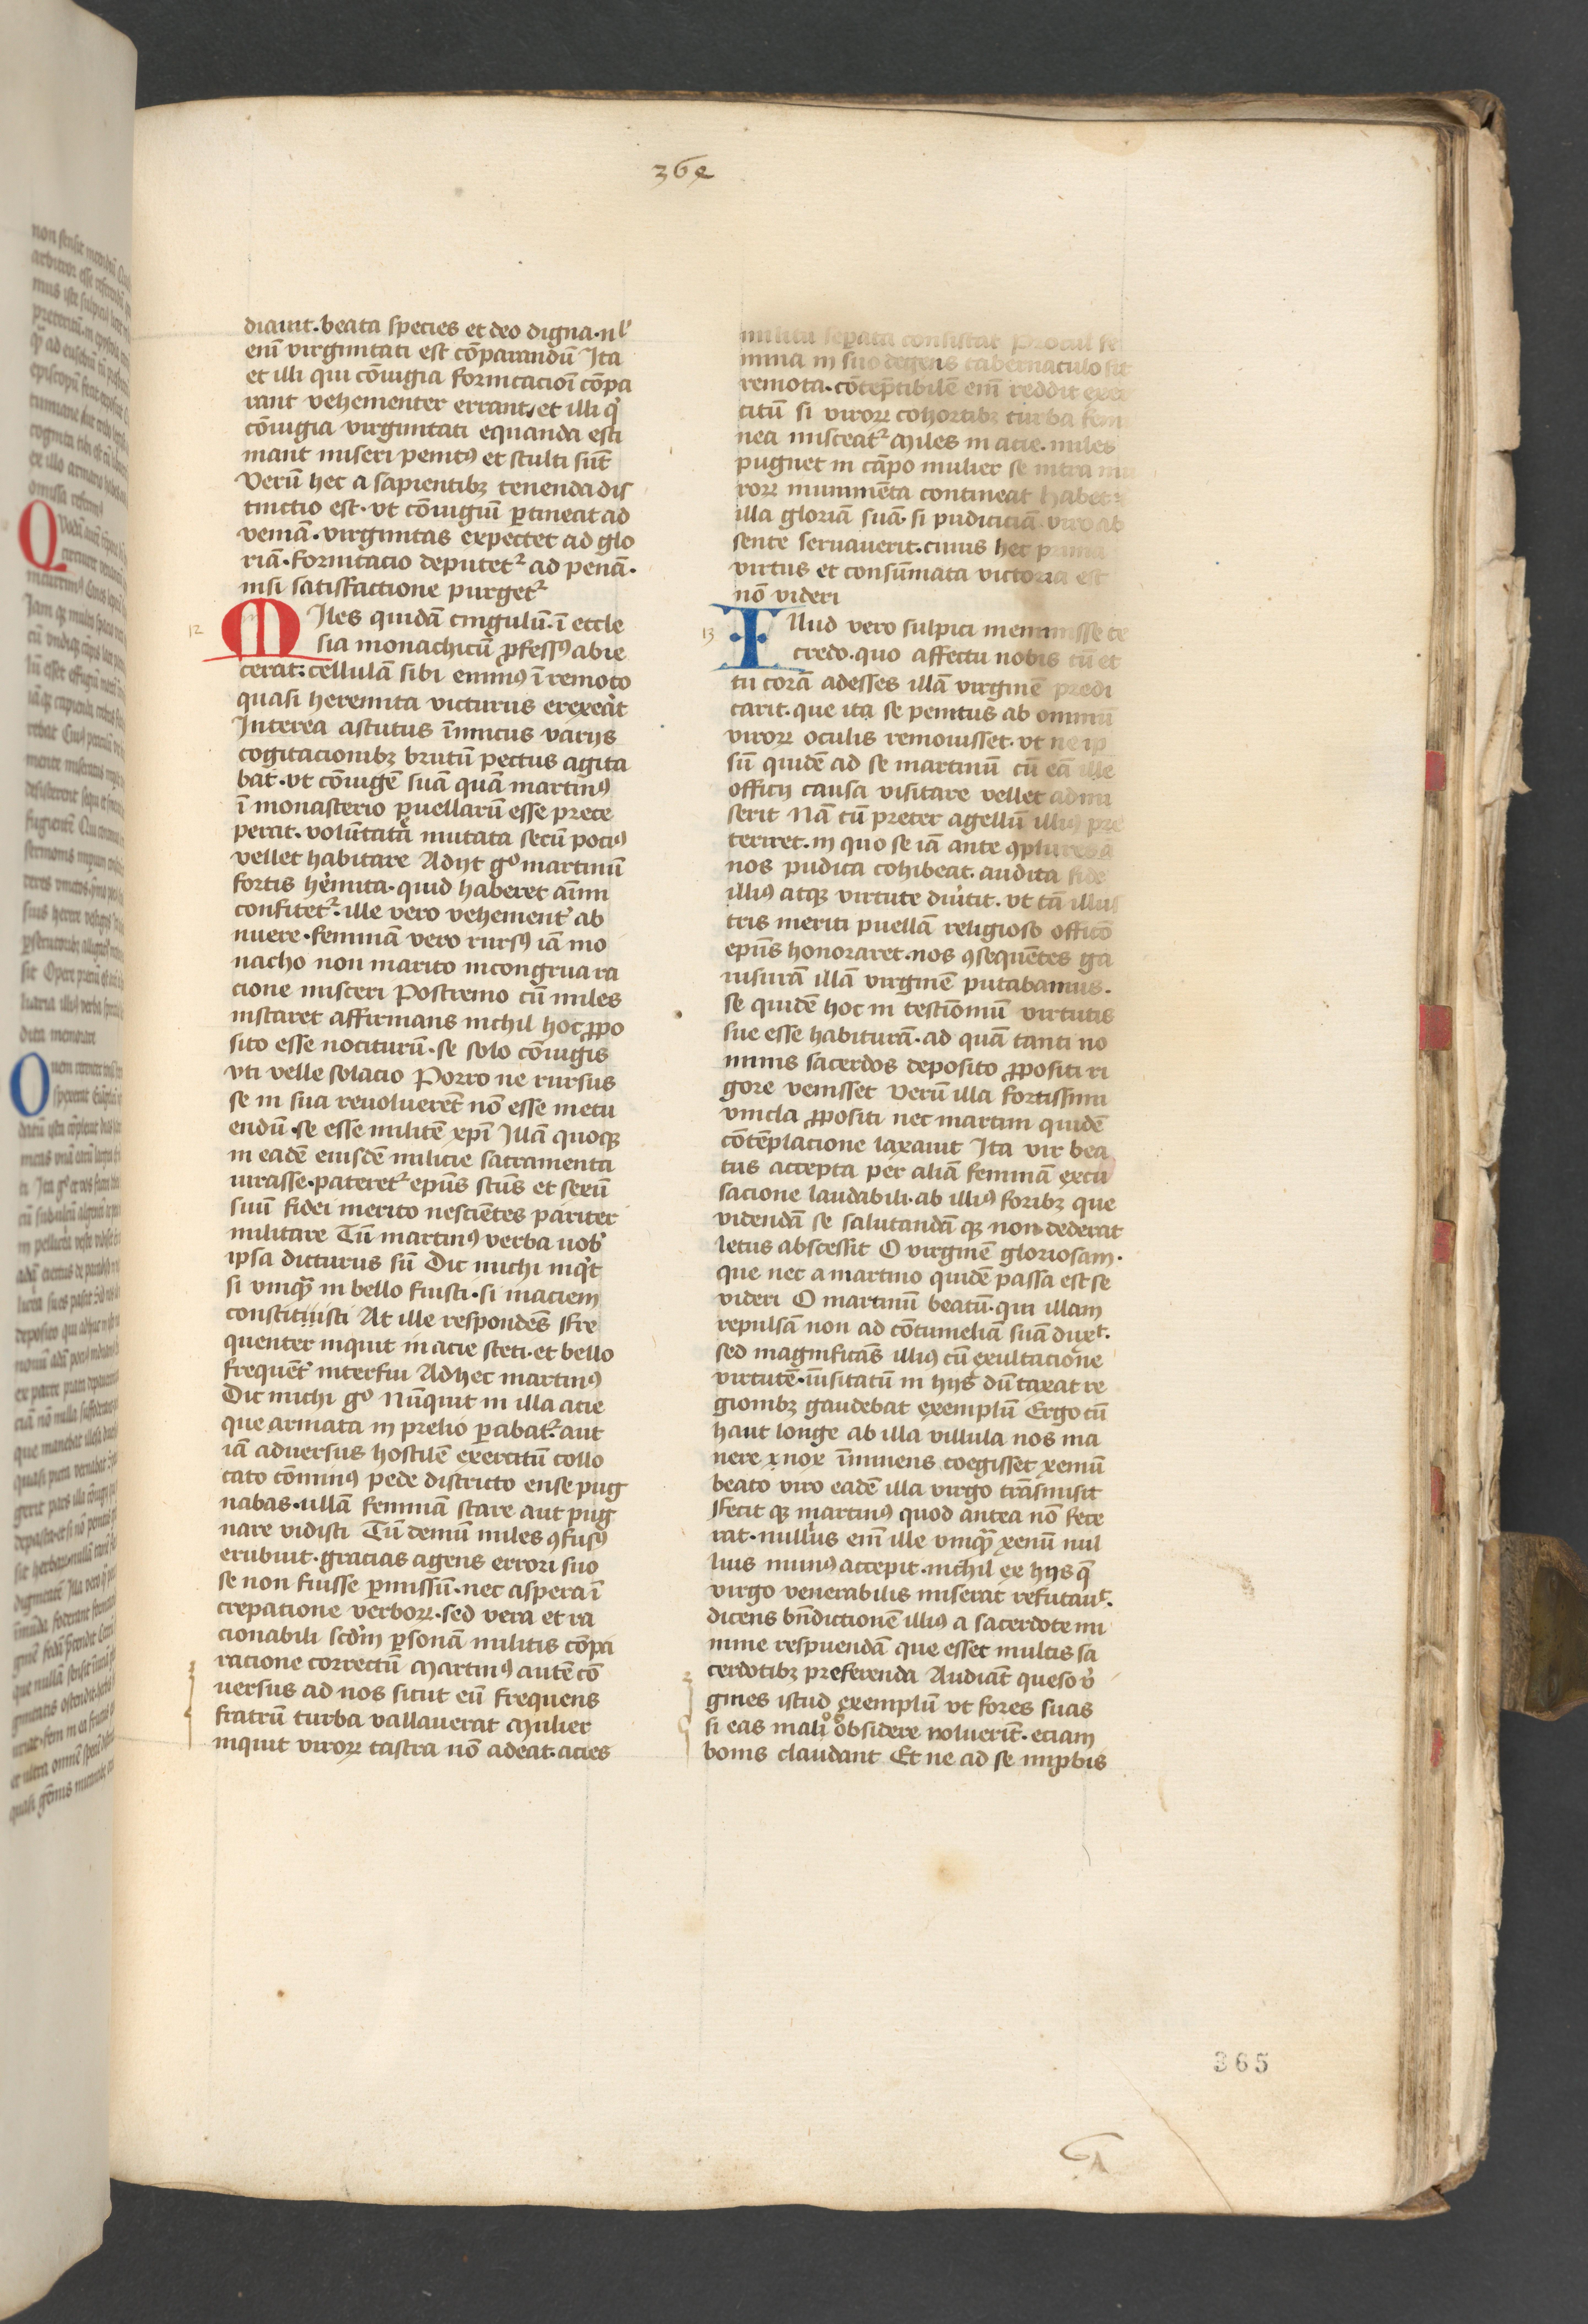 364
diauit·beata species et deo digna·nl̕
enī virginitati est cōparandū Ita
et illi qui cōiugia fornicacioī cōpa
rant vehementer errant/et illi q̇
cōiugia virginitati equanda esti
mant miseri penitꝰ et stulti sūt
Verū hec a sapientibꝫ tenenda dis
tinctio est·vt cōiugiū ꝑtineat ad
veniā·virginitas expectet ad glo
riā·fornicacio deputetᷣ ad penā·
nisi satisfactione purgetᷣ
12
MIles quidā cingulū·ī eccle
sia monachicū ꝓfessꝰ abie
cerat:cellulā sibi eminꝰ ī remoto
quasi heremita victurus erexeàt
Interea astutus īimicus varijs
cogitacionibꝫ brutū pectus agita
bat·vt cōiugē suā quā martinꝰ
ī monasterio puellarū esse prece
perat·volūtatē mutata secū pociꝰ
vellet habitare Adijt gͦ martinū
fortis hēmita·quid haberet aīmi
confitetᷣ·ille vero vehement̕ ab
nuere·feminā vero rursꝰ iā mo
nacho non marito incongrua ra
cione misceri Postremo cū miles
instaret affirmans nichil hoc ꝓpo
sito esse nociturū·se solo cōiugis
vti velle solacio Porro ne rursus
se in sua reuolueret̄ nō esse metu
endū·se esse militē xpī Illā quoqꝫ
in eadē eiusdē milicie sacramenta
iurasse·pateretᷣ epūs scūs et sexū
suū fidei merito nesciētes pariter
militare Tū martinꝰ verba uob̕
ipsa dicturus sū Dic michi inq̇t
si vmqᷓ in bello fuisti·si in aciem
constituisti At ille respondēs Fre
quenter inquit in acie steti·et bello
frequēt̕ interfui Ad hec martinꝰ
Dic michi gͦ Nūquit in illa acie
que armata in prelio ꝑabatᷣ·aut
iā aduersus hostilē exercitū collo
cato cōminꝰ pede districto ense pug
nabas·ullā feminā stare aut pug
nare vidisti Tū demū miles ꝯfusꝰ
erubuit·gracias agens errori suo
se non fuisse ꝑmissū·nec aspera ī
crepatione verboꝝ·sed vera et ra
cionabili scdm̄ ꝑsonā militis cōpa
racione correctū Martinꝰ autē cō
uersus ad nos sicut eū frequens
fratrū turba vallauerat Mulier
inquit viroꝝ castra nō adeat·acies
militū seꝑata consistat Procul fe
mina in suo degens tabernaculo sit
remota·cōtēptibilē enī reddit exer
citū si viroꝝ cohortibꝫ turba femi
nea misceatᷣ Miles in acie·miles
pugnet in cāpo mulier se intra mu
roꝝ munimēta contineat habet
illa gloriā suā·si pudiciciā viro ab
sente seruauerit·cuius hec prima
virtus et consūmata victoria est
nō videri
13
ILlud vero sulpici meminisse te
credo·quo affectu nobis cū et
tu corā adesses illā virginē predi
carit·que ita se penitus ab omniū
viroꝝ oculis remouisset·vt ne ip
sū quidē ad se martinū cū eā ille
officij causa visitare vellet admi
serit Nā cū preter agellū illiꝰ pre
teriret·in quo se iā ante ꝯplures ā
nos pudica cohibeat·audita fide
illiꝰ atqꝫ virtute diu̕tit·vt tā illus
tris meriti puellā religioso officō
epūs honoraret·nos ꝯsequētes ga
uisurā illā virginē putabamus·
se quidē hoc in testīoniū virtutis
sue esse habiturā·ad quā tanti no
minis sacerdos deposito ꝓpositi ri
gore venisset Verū illa fortissimi
vincla ꝓpositi nec martini quidē
cōtēplacione laxauit Ita vir bea
tus accepta per aliā feminā excu
sacione laudabili·ab illiꝰ foribꝫ que
videndā se salutandā qꝫ non dederat
letus abscessit O virginē gloriosam·
que nec a martino quidē passa est se
videri O martinū beatū·qui illam
repulsā non ad cōtumeliā suā duxͭ·
sed magnificās illiꝰ cū exultacione
virtutē·īusitatū in hijs dū taxat re
gionibꝫ gaudebat exemplū Ergo cū
haut longe ab illa villula nos ma
nere nox īminens coegisset xeniū
beato viro eadē illa virgo trāsmisit
Fecit qꝫ martinꝰ quod antea nō fece
rat·nullius enī ille vmqᷓ xeniū nul
lius munꝰ accepit·nichil ex hijs q̄
virgo venerabilis miserat refutauͭ·
dicens bn̄dictionē illiꝰ a sacerdote mi
nime respuendā que esset multis sa
cerdotibꝫ preferenda Audiāt queso v̇
gines istud exemplū vt fores suas
si eas mali obsidere noluerūt·eciam
bonis claudant Et ne ad se imꝓbis
365